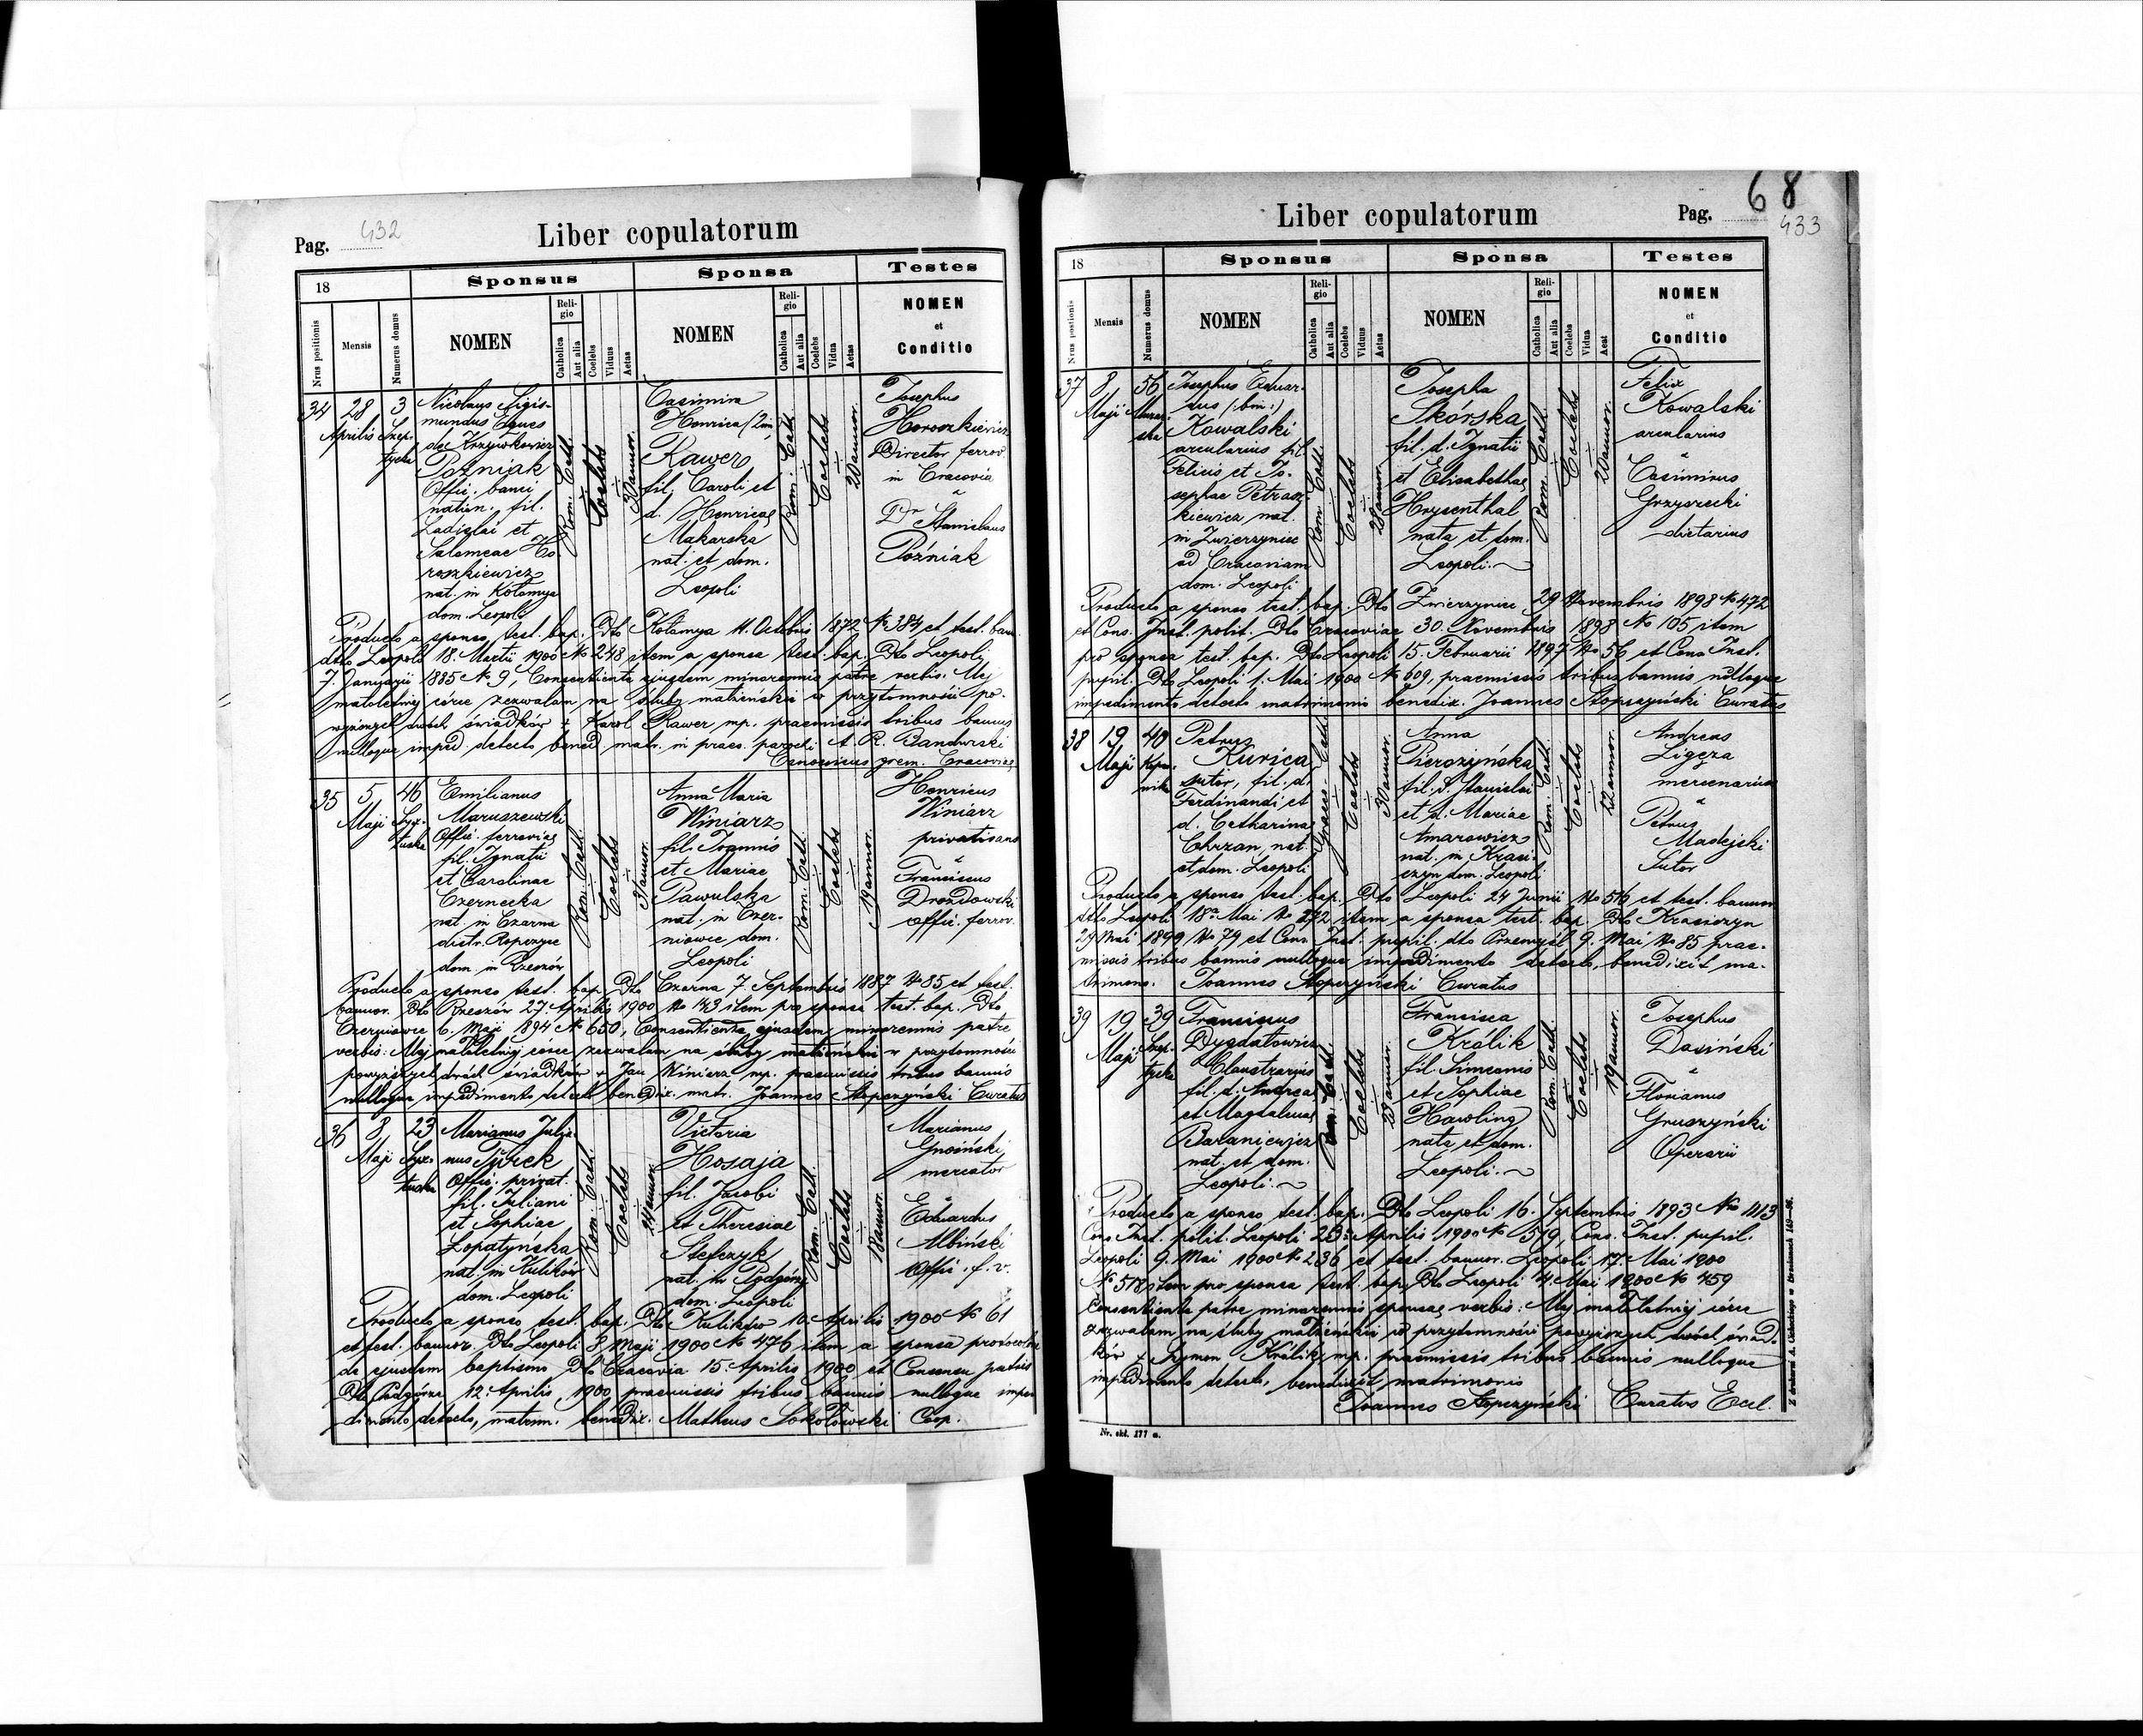 Pag. 432
Liber copulatorum
18
Sponsus
Sponsa
Testes
Nrus positionis
Mensis
Numerus domus
NOMEN
Religio
Catholica
Aut alia
Coelebs
Viduus
Aetas
NOMEN
Religio
Catholica
Aut alia
Coelebs
Vidua
Aetas
NOMEN
et
Conditio
34
28
Aprilis
3
Szep-
tycka
Nicolaus Sigis-
mundus
de Krzywkowicz
Poźniak
Offic. banci
nation. fil.
Ladislai et
Salomeae Ho
roszkiewicz
nat. in Kołomya
dom. Leopoli
Rom. Cath.
Coelebs
Casimira
Henrica
Rawer
fil. Caroli et
d. Henricae
Makarska
nat. et dom.
Leopoli
Rom. Cath.
Coelebs
20 annor.
Josephus
Horoszkiewicz
Director ferrov.
in Cracovia
Dr Stanislaus
Poźniak
Producto a sponso test. bap. Dto Kołomya 11. Octobris 1872 No 384 et test. ban.
dtto Leopoli 18. Martii 1900 No 248 item a sponsa test. bap. Dto Leopoli
7. Januarii 1885 No 9, Consentiente ejusdem minorennis patre verbis: Mej
małoletniej córce zezwalam na śluby małżeńskie w przytomności po-
wyższych dwóch świadków + Karol Rawer mp. praemissis tribus bannis
nulloque imped. detecto bened. matr. in praes. parochi A. R. Bandurski
Canonicus grem. Cracovia
35
5
Maji
46
Syx-
tuska
Emilianus
Maruszewski
Offic. ferroviae
fil. Ignatii
et Carolinae
Czernecka
nat. in Czarna
distr. Ropczyce
dom. in Rzeszów
Rom. Cath.
Coelebs
Anna Maria
Winiarz
fil. Joannis
et Mariae
Pawulska
nat. in Czer-
niowce dom.
Leopoli
Rom. Cath.
Coelebs
19 annor.
Henricus
Winiarz
privatisans
Franciscus
Drozdowski
offic. ferrov.
Producto a sponso test. bap. Dto Czarna 7. Septembris 1887 No 85 et test.
bannor. Dto Rzeszów 27. Aprilis 1900 No 143 item pro sponsa test. bap. Dto
Czerniowce 6. Maji 1894 No 650, Consentiente ejusdem minorennis patre
verbis: Mej małoletniej córce zezwalam na śluby małżeńskie w przytomności
powyższych dwóch świadków + Jan Winiarz mp. praemissis tribus bannis
nulloque impedimento detecto benedix. matr. Joannes Stopczyński Curatus
36
8
Maji
23
Syx-
tuska
Marianus Julia-
nus
Offic. privat.
fil. Juliani
et Sophiae
Łopatyńska
nat. in Kulików
dom. Leopoli
Rom. Cath.
Coelebs
24 annor.
Victoria
Hosaja
fil. Jacobi
et Theresiae
Stefczyk
nat. in Podgórze
dom. Leopoli
Rom. Cath.
Coelebs
18 annor.
Marianus
Gnoiński
mercator
Eduardus
Albiński
offic. f. v.
Producto a sponso test. bap. Dto Kulików 10. Aprilis 1900 No 61
et test. bannor. Dto Leopoli 8 Maji 1900 No 476 item a sponsa protocollo
de ejusdem baptismo Dto Cracovia 15 Aprilis 1900 et Consensu patris
Dto Podgórze 12. Aprilis 1900, praemissis tribus bannis nulloque impe
dimento detecto, matrim. benedix. Matheus Sokołowski Coop.
68
Liber copulatorum
Pag. 433
18
Sponsus
Sponsa
Testes
Nrus postionis
Mensis
Numerus domus
NOMEN
Religio
Catholica
Aut alia
Coelebs
Viduus
Aetas
NOMEN
Religio
Catholica
Aut alia
Coelebs
Vidua
Aeat
NOMEN
et
Conditio
37
8
Maji
56
Josephus Eduar-
dus (:bin:)
Kowalski
arcularius fil.
Felicis et Jo-
sephae Petrasz-
kiewicz nat.
in Zwierzyniec
ad Cracoviam
dom. Leopoli
Rom. Cath.
Coelebs
Josepha
Skórska
fil. d. Ignatii
et Elisabethae
Hrysenthal
nata et dom.
Leopoli.
Rom. Cath.
Coelebs
Felix
Kowalski
arcularius
Casimirus
Grzysiecki
dietarius
Producto a sponso test. bap. Dto Zwierzyniec 29 Novembris 1898 No 472
et Cons. Inst. polit. Dto Cracoviae 30. Novembris 1898 No 105 item
pro sponsa test. bap. Dto Leopoli 15. Februarii 1897 No 56 et Cons Inst.
pupil. Dto Leopoli 1. Mai 1900 No 609, praemissis tribus bannis nulloque
impedimento detecto matrimonio benedix. Joannes Stopczyński Curatus
38
19
Maji
40
Koper-
nika
Petrus
Kurica
sutor, fil. d.
Ferdinandi et
d. Catharinae
Chrzan, nat.
et dom. Leopoli
Graeco Cath.
Coelebs
30 annor.
Anna
Pierszyńska
fil. d. Stanislai
et d. Mariae
Amarowicz
nat. in Krasi-
czyn dom. Leopoli
Rom. Cath.
Coelebs
Andreas
Ligęza
mercenarius
Petrus
Madejski
Sutor
Producto a sponso test. bap. Dto Leopoli 24 Junii No 576 et test. bannor
dtto Leopoli 18a Mai No 272 item a sponsa test. bap. Dto Krasiczyn
29 Mai 1899, No 79 et Cons. Inst. pupil. dto Przemyśl 9. Mai No 85 prae-
missis tribus bannis nulloque impedimento detecto, benedixit ma-
trimon. Joannes Stopczyński Curatus
39
19
Maji
39
Szep-
tycka
Franciscus
Dygdatowicz
Claustrarius
fil. d. Andreae
et Magdalenae
Baraniewicz
nat. et dom.
Leopoli.
Rom. Cath.
Coelebs
Francisca
Królik
fil. Simeonis
et Sophiae
Hawling
nata et dom.
Leopoli.
Rom. Cath.
Coelebs
19 annor.
Josephus
Dasiński
Florianus
Gruszyński
Operarii
Producto a sponso test. bap. Dto Leopoli 16. Septembris 1893 No 1113
Cons Inst. polit. Leopoli 23. Aprilis 1900 No 579, Cons. Inst. pupil.
Leopoli 9. Mai 1900 No 236 et test. bannor. Leopoli 17. Mai 1900
No 578 item pro sponsa test. bap. Dto Leopoli 4. Mai 1900 No 459
Consentiente patre minorennis sponsae verbis: Mej małoletniej córce
zezwalam na śluby małżeńskie w przytomności powyższych dwóch świad-
ków + Szymon Królik mp. praemissis tribus bannis nulloque
impedimento detecto, benedixit matrimonio
Joannes Stopczyński Curatus Eccl.
Nr. skł. 177 a.